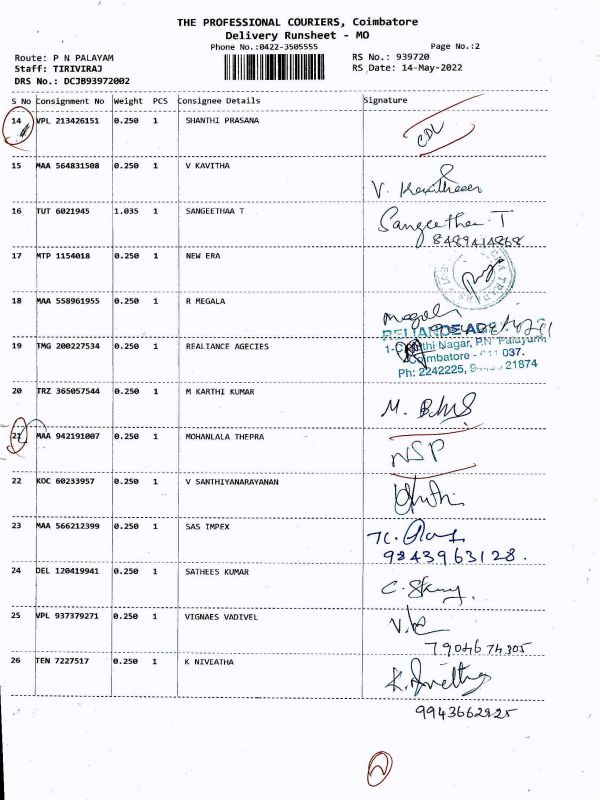 THE PROFESSIONAL COURIERS, Coimbatore
Delivery Runsheet - MO
Phone No.:0422-3505555 Page No.:2
Route: P N PALAYAM RS No.: 939720
Staff: TIRIVIRAJ RS Date: 14-May-2022
DRS No.: DCJB93972002
S No Consignment No Weight PCS Consignee Details Signature
14 VPL 213426151 0.250 1 SHANTHI PRASANA
CDL
15 MAA 564831508 0.250 1 V KAVITHA
16 TUT 6021945 1.035 1 SANGEETHAA T
Sangeethaa T
8489414868
17 MTP 1154018 0.250 1 NEW ERA
18 MAA 558961955 0.250 1 R MEGALA
19 TMG 200227534 0.250 1 REALIANCE AGECIES
Nagar, P.N. Palayam,
037.
Ph: 2242225, 21874
20 TRZ 365057544 0.250 1 M KARTHI KUMAR
21 MAA 942191007 0.250 1 MOHANLALA THEPRA
NSP
22 KOC 60233957 0.250 1 V SANTHIYANARAYANAN
23 MAA 566212399 0.250 1 SAS IMPEX
9843963128.
24 DEL 120419941 0.250 1 SATHEES KUMAR
25 VPL 937379271 0.250 1 VIGNAES VADIVEL
7904674305
26 TEN 7227517 0.250 1 K NIVEATHA
9943662925
2